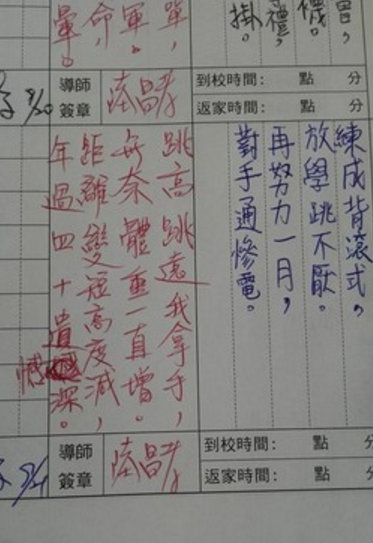 曾，
襪。
禮，
掛。
單，
軍
命，
暈。
導師
簽章
到校時間： 點 分
返家時間： 點 分
練成背滾式，
放學跳不厭。
再努力一月，
對手通慘電。
跳高跳遠我拿手，
無奈體重一直增。
距離變短高度減，
年過四十遺憾深。
導師
簽章
到校時間： 點 分
返家時間： 點 分